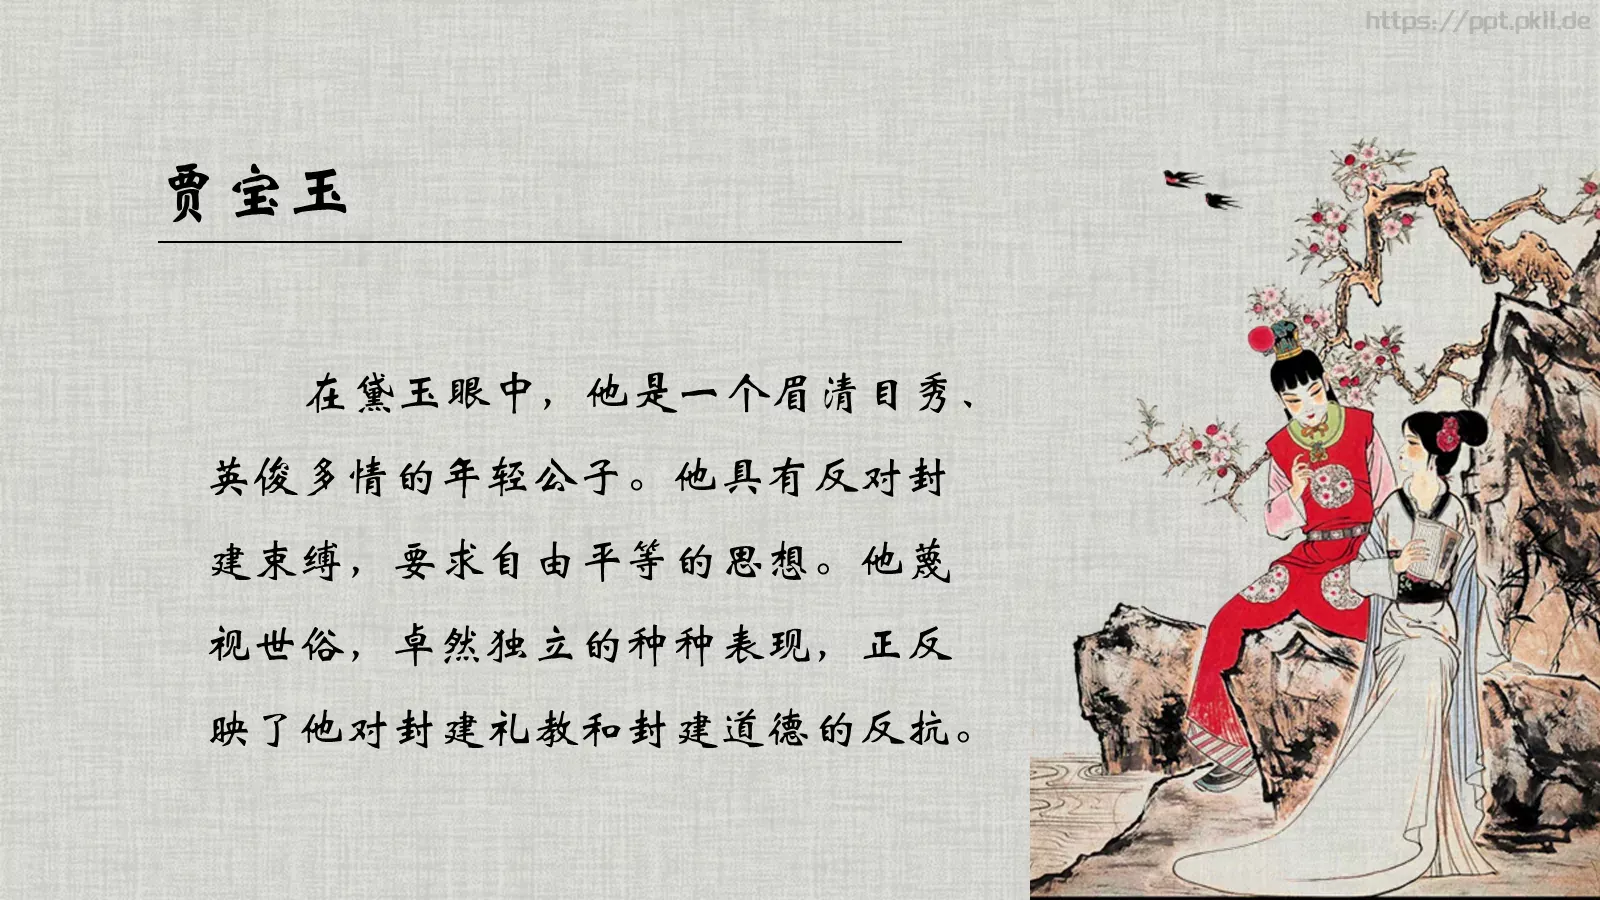 https://ppt.pkil.de
贾宝玉
在黛玉眼中，他是一个眉清目秀、
英俊多情的年轻公子。他具有反对封
建束缚，要求自由平等的思想。他蔑
视世俗，卓然独立的种种表现，正反
映了他对封建礼教和封建道德的反抗。